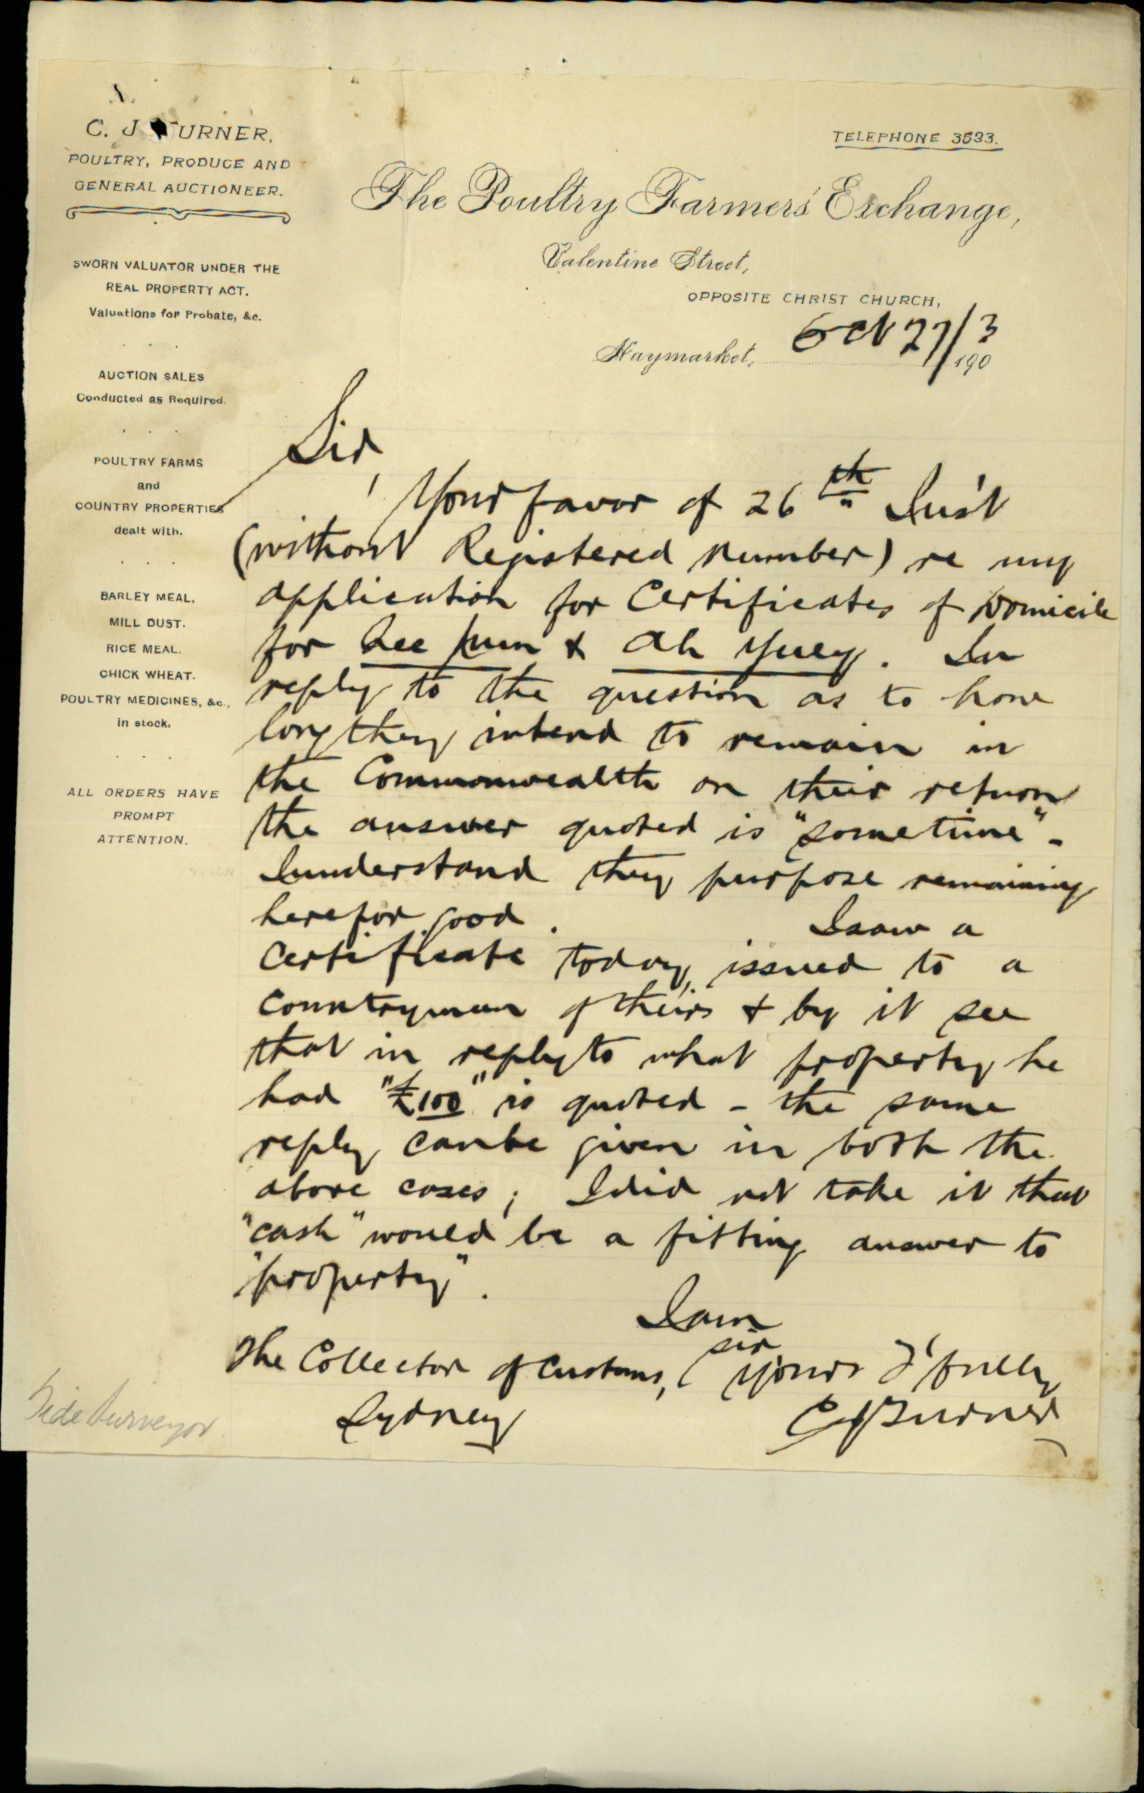 C. J TURNER.
POULTRY, PRODUCE AND
GENERAL AUCTIONEER.
SWORN VALUATOR UNDER THE
REAL PROPERTY ACT.
Valuations for Probate, &c.
AUCTION SALES
Conducted as Required.
POULTRY FARMS
and
COUNTRY PROPERTIES
dealt with.
BARLEY MEAL.
MILL DUST.
RICE MEAL.
CHICK WHEAT.
POULTRY MEDICINES, &c.,
in stock.
ALL ORDERS HAVE
PROMPT
ATTENTION.
TELEPHONE 3533.
The Poultry Farmers' Exchange,
Valentine Street,
OPPOSITE CHRIST CHURCH,
Haymarket, Oct 27/ 1903
Sir,
Your favor of 26th Inst
(without Registered number) re my
application for Certificates of Domicile
for Lee Kum & Ah Yuey. In
reply to the question as to how
long they intend to remain in
the Commonwealth on their return
the answer quoted is "sometime" -
I understand they purpose remaining
here for good. I saw a
Certificate today, issued to a
countryman of theirs & by it see
that in reply to what property he
had "£100" is quoted - the same
reply can be given in both the
above cases; I did not take it that
"cash" would be a fitting answer to
"property".
I am
sir
The Collector of Customs, Yours F'fully
Sydney CJTurner
Tide Surveyor